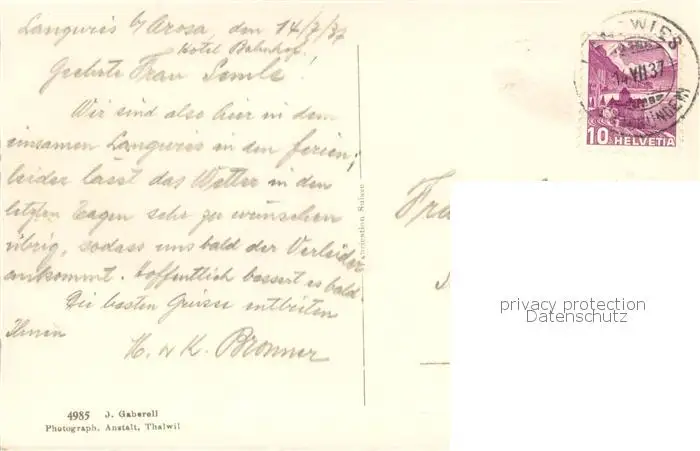 Langwies b/Arosa, den 14/7/37
Hotel Bahnhof.
Geehrte Frau Semle!
Wir sind also hier in dem
einsamen Langwies in den Ferien;
leider lässt das Wetter in den
letzten Tagen sehr zu wünschen
übrig, sodass uns bald der Verleider
ankommt. Hoffentlich bessert es bald
Die besten Grüsse entbieten
Ihnen
H. u K. Bronner
4985 J. Gaberell
Photograph. Anstalt, Thalwil
Fabrication Suisse
WIES
14.VII.37
10 HELVETIA
Fra
privacy protection
Datenschutz